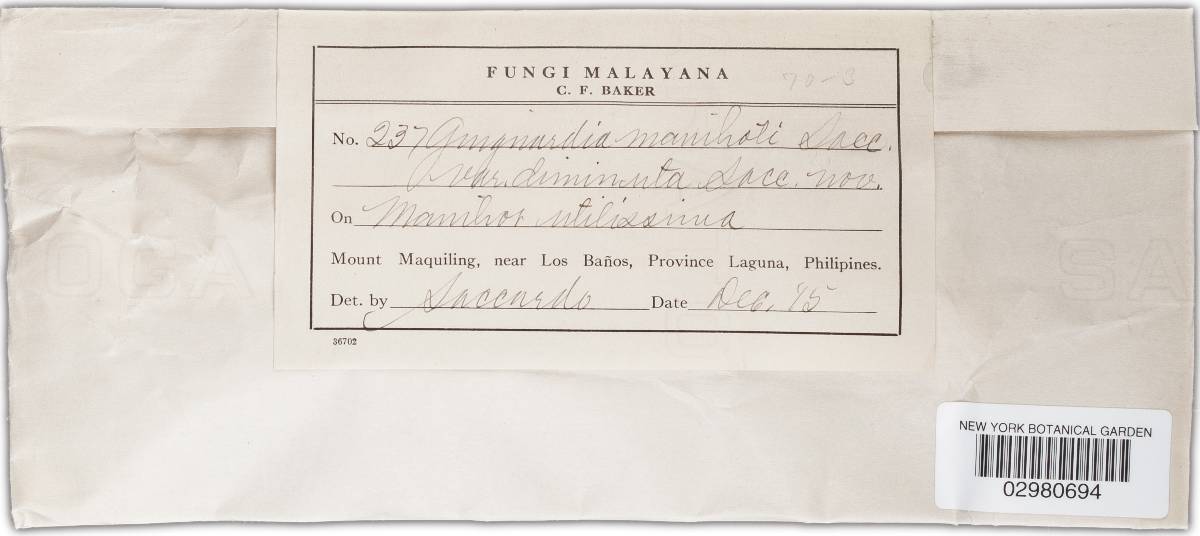 FUNGI MALAYANA
70-3
C. F. BAKER
No. 237 Guignardia manihoti Sacc.
var. diminuta Sacc. nov.
On Manihot utilissima
Mount Maquiling, near Los Baños, Province Laguna, Philipines.
Det. by Saccardo Date Dec. '15
36702
NEW YORK BOTANICAL GARDEN
02980694